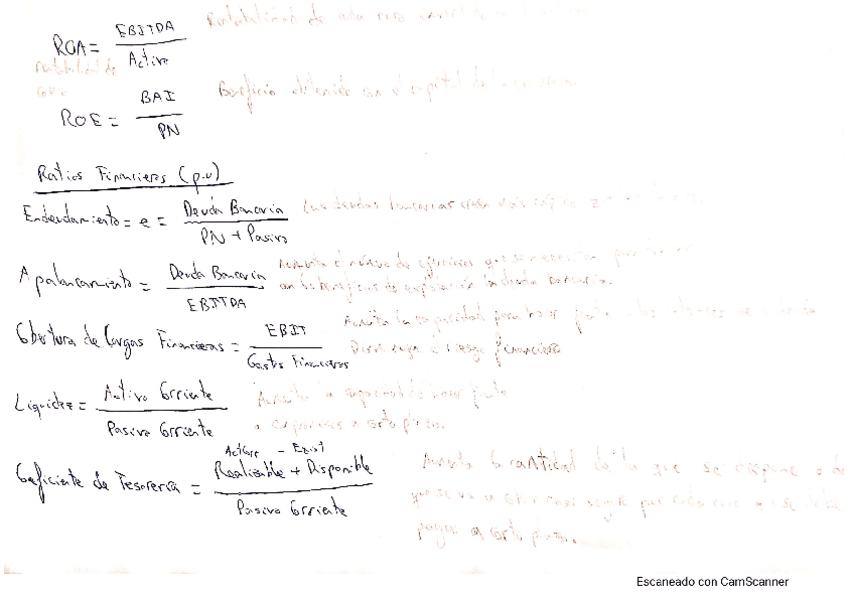 ROA = EBITDA / Activo
Rentabilidad de cada euro
rentabilidad de
ROE = BAI / PN
Beneficio obtenido con el capital de la
Ratios Financieros (p.v)
Endeudamiento = e = Deuda Bancaria / PN + Pasivo
Las deudas bancarias
Apalancamiento = Deuda Bancaria / EBITDA
Aumenta el número de ejercicios que se necesitan para
con los beneficios de explotación la deuda bancaria.
Cobertura de Cargas Financieras = EBIT / Gastos Financieros
Aumenta la capacidad para hacer frente a los
Disminuye el riesgo financiero
Liquidez = Activo Corriente / Pasivo Corriente
Aumenta la capacidad de hacer frente
a corto plazo.
Act Corr - Exist
Coeficiente de Tesorería = Realizable + Disponible / Pasivo Corriente
Aumenta la cantidad de la que se dispone o de
que se va a por cada euro que se debe
pagar a corto plazo.
Escaneado con CamScanner